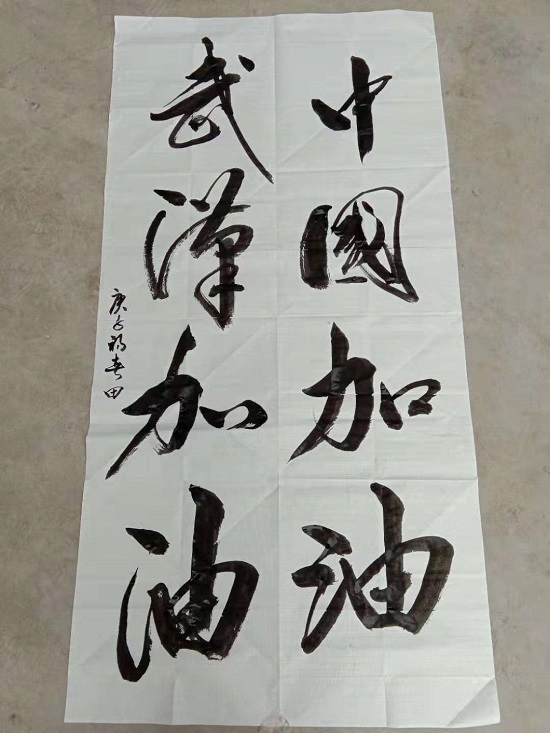 中國加油
武漢加油
庚子初春田